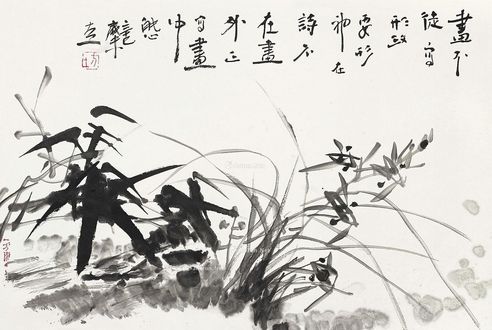 畫不
徒寫
形政
要形
神在
詩不
在畫
外正
寫畫
中
態